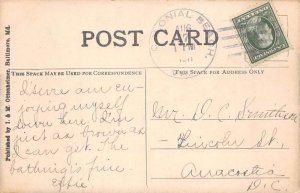 POST CARD
COLONIAL BEACH,
AUG
THIS SPACE MAY BE USED FOR CORRESPONDENCE
(THIS SPACE IS FOR ADDRESS ONLY.)
Published by I. & M. Ottenheimer, Baltimore, Md.
I sure am en-
joying myself
down here. I'm
just as brown as
I can get. The
bathing's fine.
Effie.
Mr. D. C. Smithson
Lincoln St,
Anacostia
D.C.